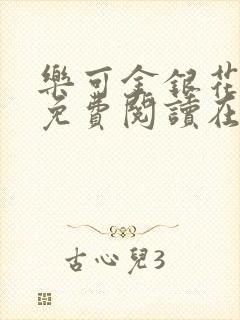 樂可金銀花
免費閱讀在
古心兒3